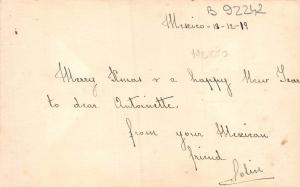 B 92242
Mexico - 18-12-19
MEXICO
Merry Xmas & a happy New Year
to dear Antoinette.
from your Mexican
friend